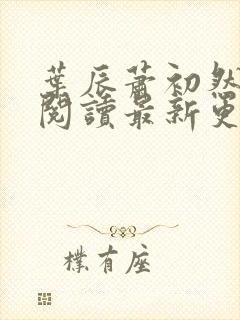 葉辰蕭初然
閱讀最新更
樸有座